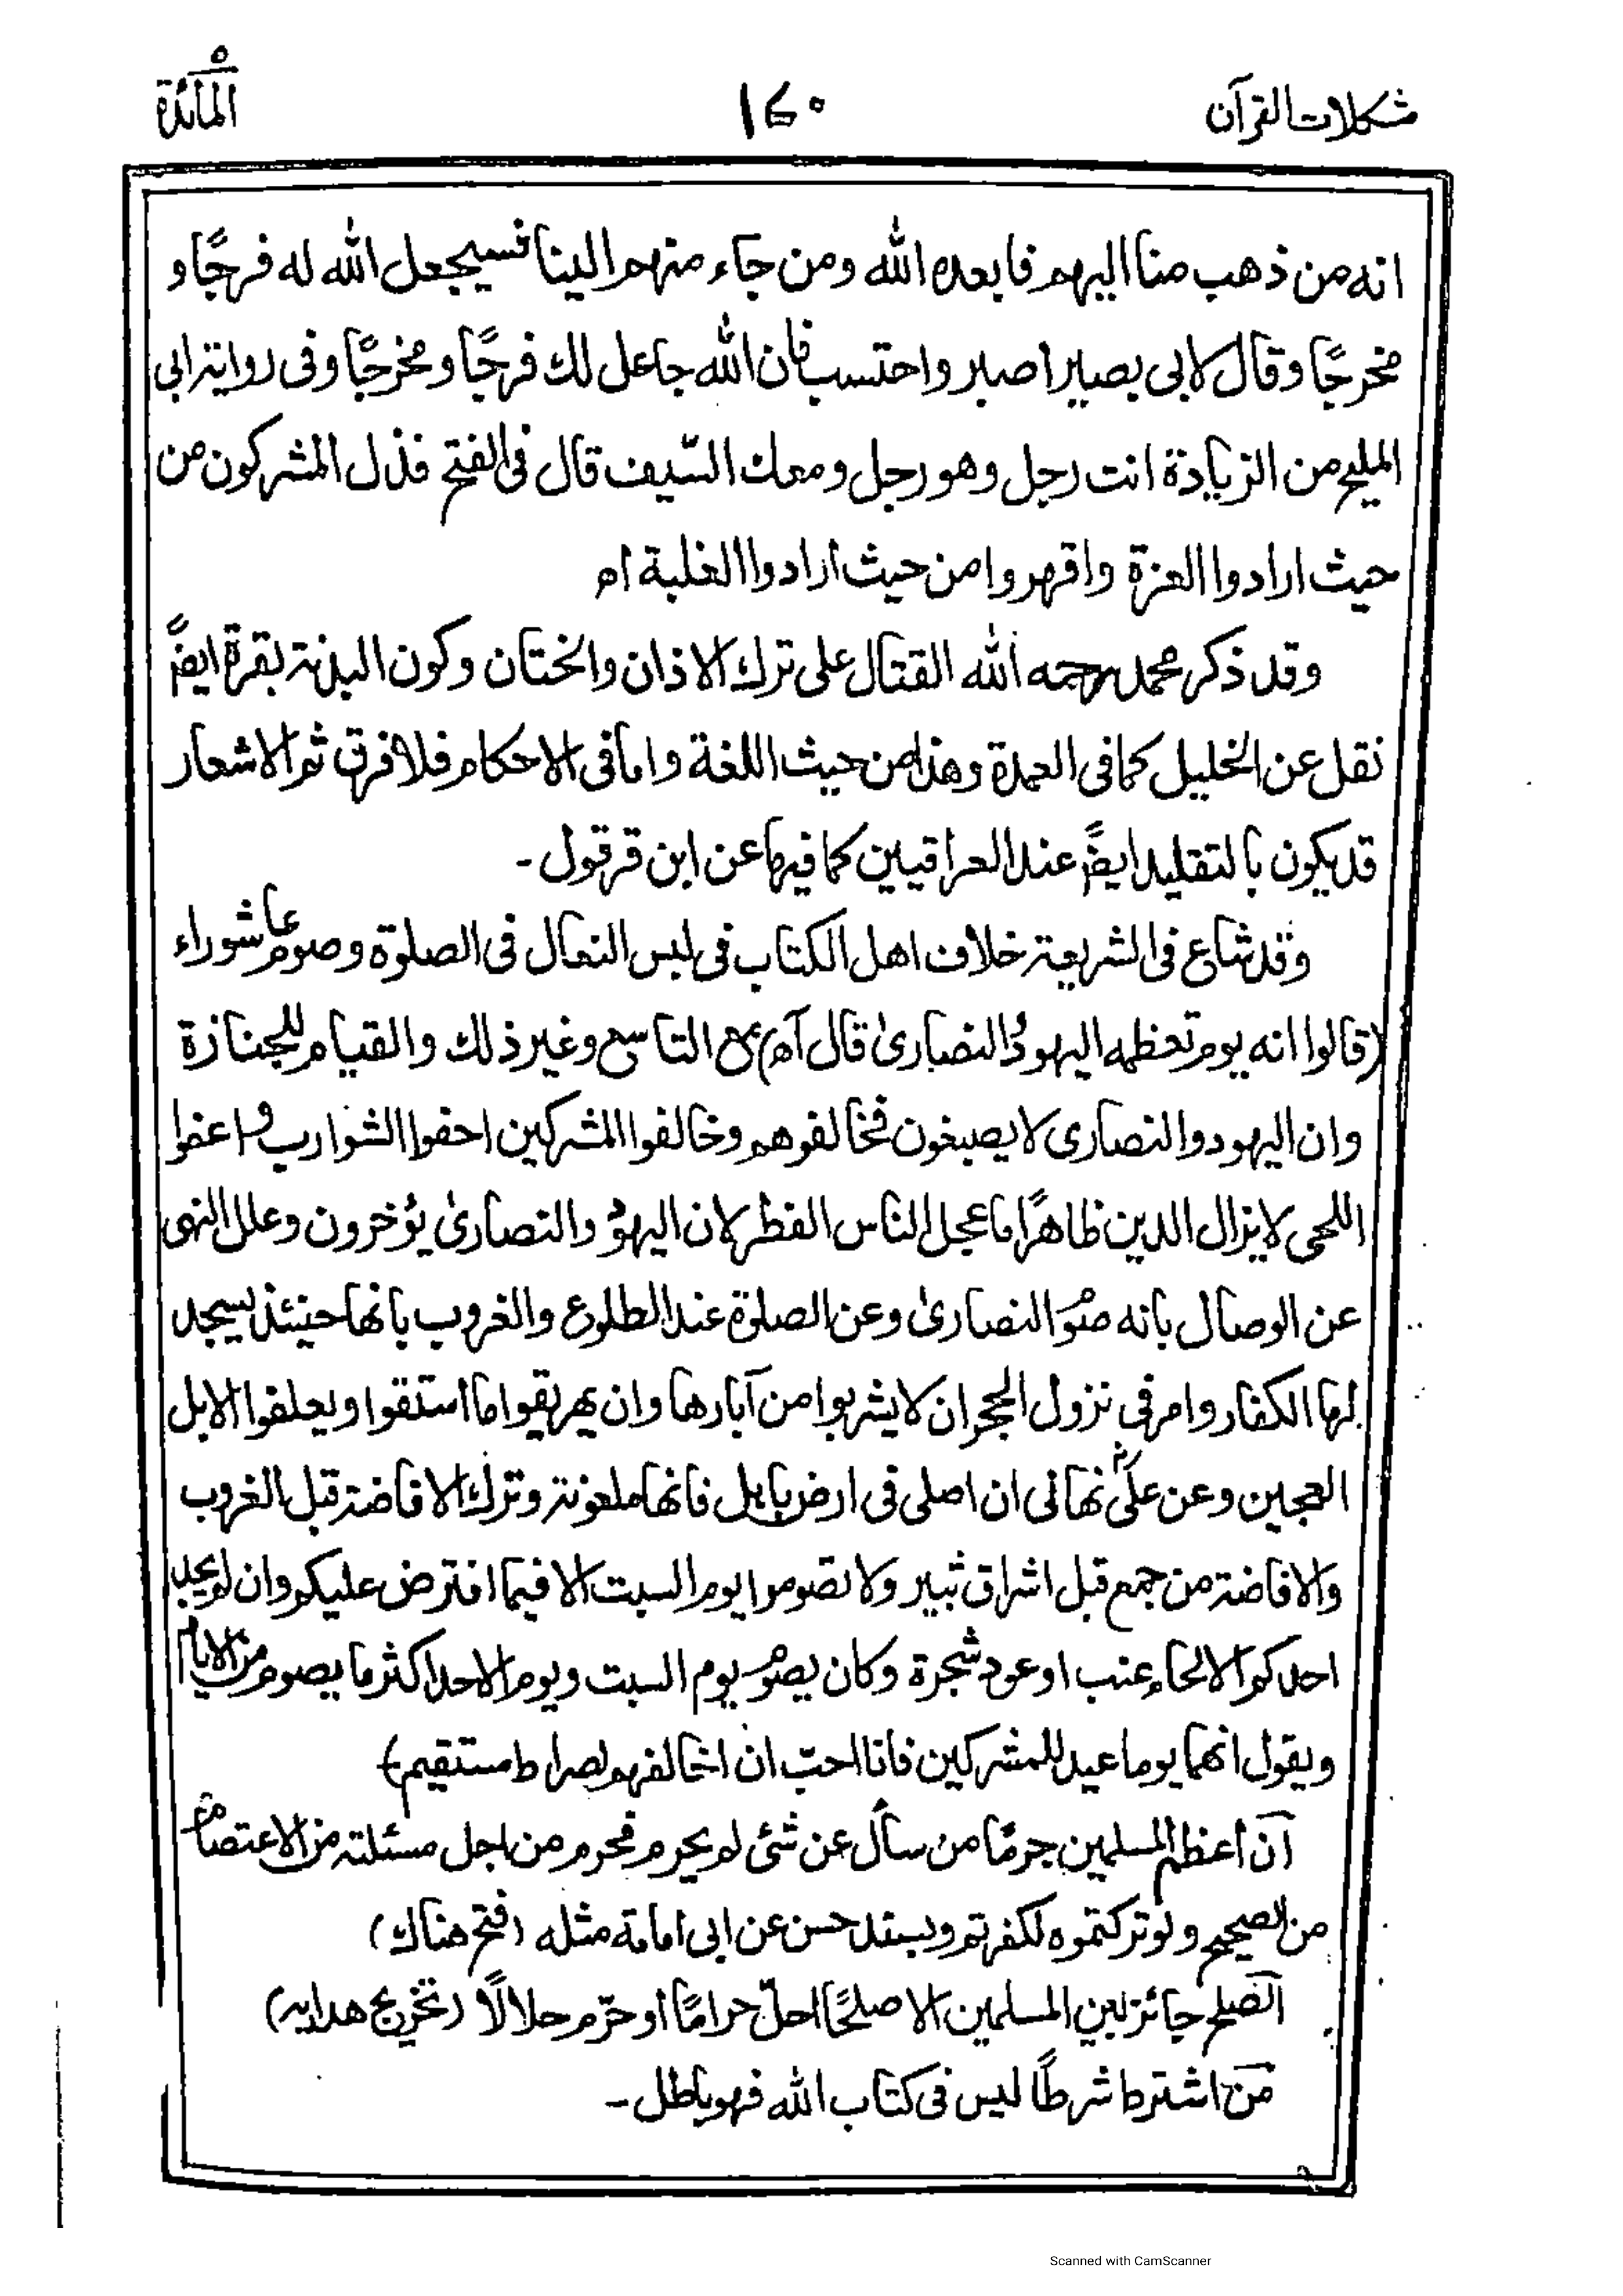 مشكلات القرآن ١٧٠ المائدة ٥
انه من ذهب منا اليهم فابعده الله ومن جاء منهم الينا فسيجعل الله له فرجًا و
مخرجًا وقال لابى بصير اصبر واحتسب فان الله جاعل لك فرجًا ومخرجًا وفى رواية ابى
المليح من الزيادة انت رجل وهو رجل ومعك السّيف قال فى الفتح فذل المشركون من
حيث ارادوا العزة واقهروا من حيث ارادوا الغلبة اه
وقد ذكر محمد رحمه الله القتال على ترك الاذان والختان وكون البدنة بقرة ايضًا
نقل عن الخليل كما فى العمدة وهذا من حيث اللغة واما فى الاحكام فلا فرق ثم الاشعار
قد يكون بالتقليد ايضًا عند العراقيين كما فيها عن ابن قرقول ـ
وقد شاع فى الشريعة خلاف اهل الكتاب فى لبس النعال فى الصلوة وصوم عاشوراء
(قالوا انه يوم تعظمه اليهود والنصارىٰ قال آمر مع التاسع وغير ذلك والقيام للجنازة
وان اليهود والنصارى لا يصبغون فخالفوهم وخالفوا المشركين احفوا الشوارب واعفوا
اللحى لا يزال الدين ظاهرًا ما عجل الناس الفطر لان اليهود والنصارىٰ يؤخرون وعلل النهى
عن الوصال بانه صوم النصارىٰ وعن الصلوة عند الطلوع والغروب بانها حينئذ يسجد
لها الكفار وامر فى نزول الحجر ان لا يشربوا من آبارها وان يهريقوا ما استقوا ويعلفوا الابل
العجين وعن علىؓ نهانى ان اصلى فى ارض بابل فانها ملعونة وترك الافاضة قبل الغروب
والافاضة من جمع قبل اشراق ثبير ولا تصوموا يوم السبت الا فيما افترض عليكم وان لم يجد
احدكم الا لحاء عنب او عود شجرة وكان يصوم يوم السبت ويوم الاحد اكثر ما يصوم من الايام
ويقول انهما يوما عيد للمشركين فانا احبّ ان اخالفهم لصراط مستقيم)
آن أعظم المسلمين جرمًا من سأل عن شئ لم يحرم فحرم من اجل مسئلته من الاعتصام
من الصحيح ولو تركتموه لكفرتم وبسند حسن عن ابى امامة مثله (فتح هناك)
الصلح جائز بين المسلمين الا صلحًا احلّ حرامًا أو حرّم حلالًا (تخريج هدايه)
من اشترط شرطًا ليس فى كتاب الله فهو باطل ـ
Scanned with CamScanner